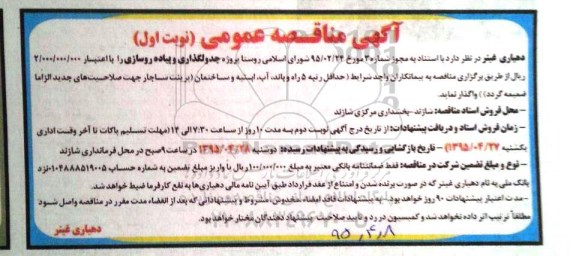 آگهی مناقصه عمومی (نوبت اول)
دهیاری غینر در نظر دارد با استناد به مجوز شماره ۳ مورخ ۹۵/۰۲/۲۴ شورای اسلامی روستا پروژه جدولگذاری و پیاده روسازی را با اعتبار ۲/۰۰۰/۰۰۰/۰۰۰
ریال از طریق برگزاری مناقصه به پیمانکاران واجد شرایط ( حداقل رتبه ۵ راه و باند، آب، ابنیه و ساختمان (پرینت ساجار جهت صلاحیت‌های جدید الزاما
ضمیمه گردد)) واگذار نماید.
- محل فروش اسناد مناقصه: شازند - بخشداری مرکزی شازند
- زمان فروش اسناد و دریافت پیشنهادات: از تاریخ درج آگهی نوبت دوم به مدت ۱۰ روز از ساعت ۷:۳۰ الی ۱۴ (مهلت تسلیم پاکات تا آخر وقت اداری
یکشنبه ۱۳۹۵/۰۴/۲۷) - تاریخ بازگشایی و رسیدگی به پیشنهادات رسیده: دوشنبه ۱۳۹۵/۰۴/۲۸ در ساعت ۹ صبح در محل فرمانداری شازند
- نوع و مبلغ تضمین شرکت در مناقصه: فقط ضمانتنامه بانکی معتبر به مبلغ ۱۰۰/۰۰۰/۰۰۰ ریال یا واریز مبلغ تضمین به شماره حساب ۰۱۰۴۸۸۸۵۱۹۰۰۵ نزد
بانک ملی به نام دهیاری غینر که در صورت برنده شدن و امتناع از عقد قرارداد طبق آیین نامه مالی دهیاری‌ها به نفع کارفرما ضبط خواهد شد.
- مدت اعتبار پیشنهادات ۹۰ روز خواهد بود. - به پیشنهادات فاقد امضاء، مخدوش، مشروط و پیشنهاداتی که بعد از انقضاء مدت مقرر در مناقصه واصل شود
مطلقاً ترتیب اثر داده نخواهد شد و کمیسیون در رد و تایید صلاحیت پیشنهاد دهندگان مختار خواهد بود.
دهیاری غینر
۹۵،۴،۸